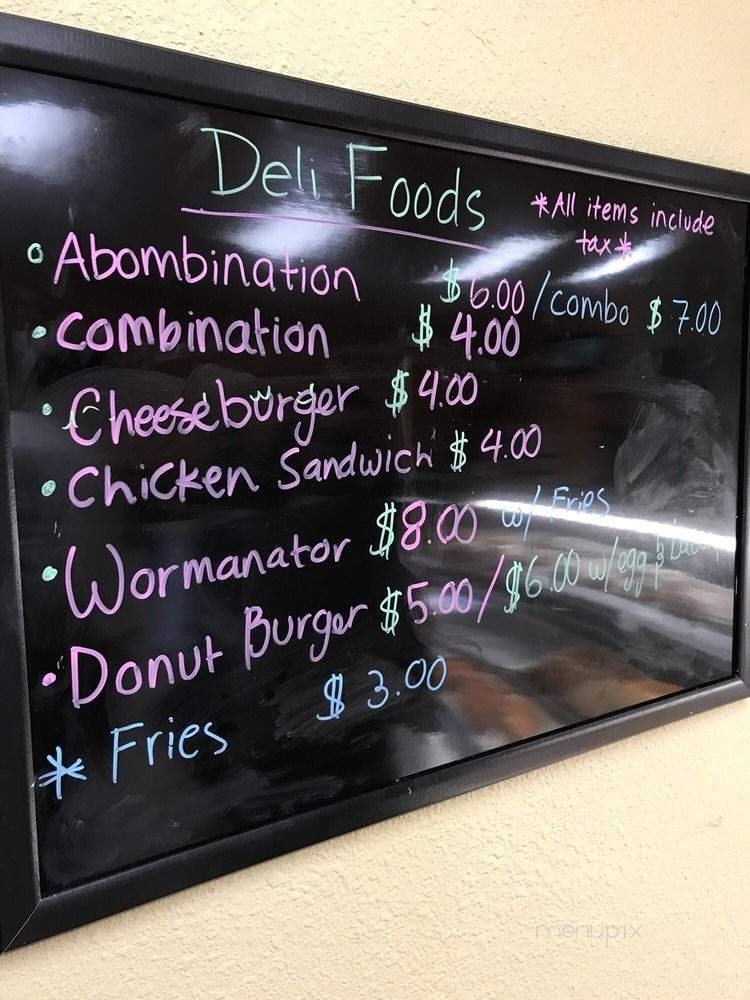 Deli Foods
*All items include
tax*
• Abombination $6.00 / combo $7.00
• Combination $4.00
• Cheeseburger $4.00
• Chicken Sandwich $4.00
• Wormanator $8.00 w/ Fries
• Donut Burger $5.00 / $6.00 w/egg & bacon
* Fries $3.00
menupix